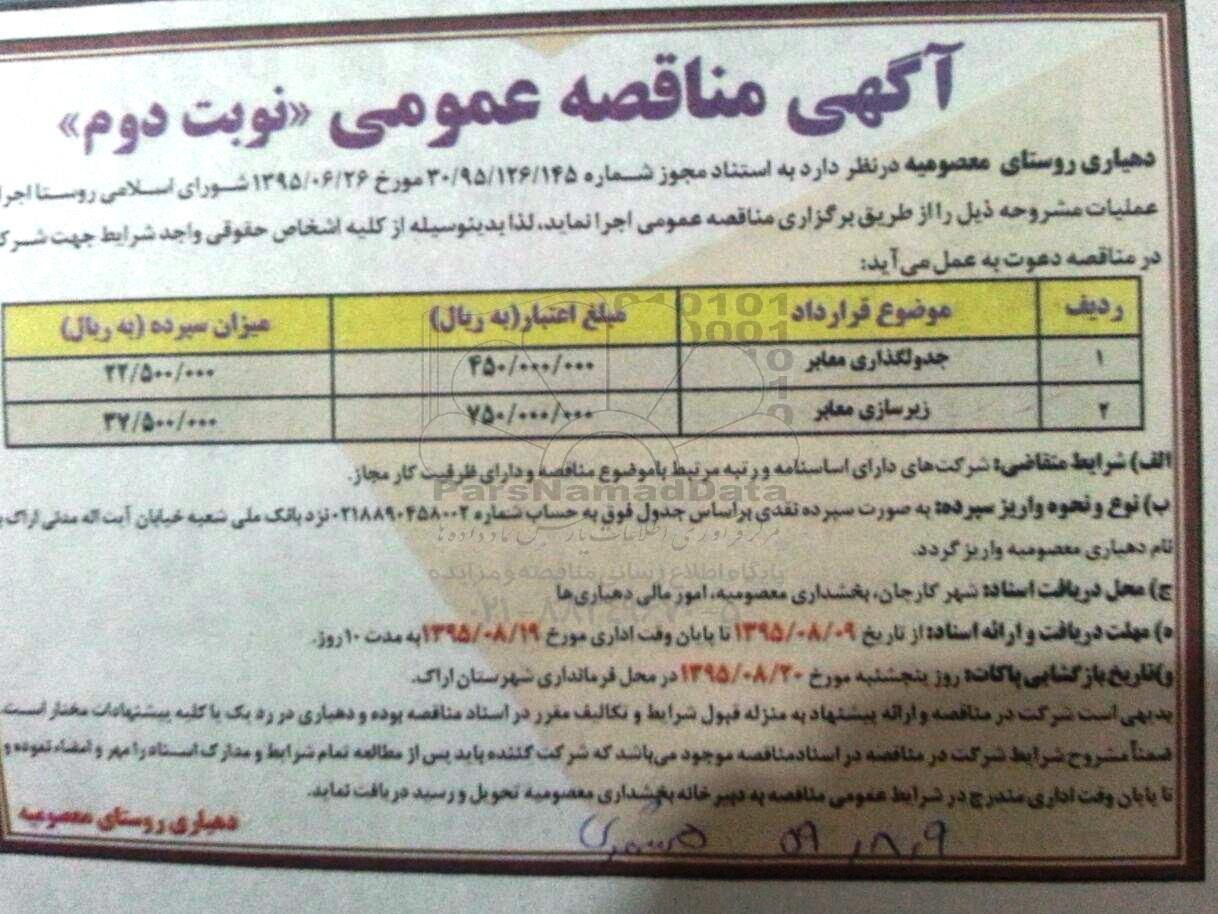 آگهی مناقصه عمومی «نوبت دوم»
دهیاری روستای معصومیه درنظر دارد به استناد مجوز شماره ۳۰/۹۵/۱۲۶/۱۴۵ مورخ ۱۳۹۵/۰۶/۲۶ شورای اسلامی روستا اجرا
عملیات مشروحه ذیل را از طریق برگزاری مناقصه عمومی اجرا نماید، لذا بدینوسیله از کلیه اشخاص حقوقی واجد شرایط جهت شرک
در مناقصه دعوت به عمل می‌آید:
ردیف موضوع قرارداد مبلغ اعتبار(به ریال) میزان سپرده (به ریال)
۱ جدولگذاری معابر ۴۵۰/۰۰۰/۰۰۰ ۲۲/۵۰۰/۰۰۰
۲ زیرسازی معابر ۷۵۰/۰۰۰/۰۰۰ ۳۷/۵۰۰/۰۰۰
الف) شرایط متقاضی: شرکت‌های دارای اساسنامه و رتبه مرتبط باموضوع مناقصه و دارای ظرفیت کار مجاز.
ParsNamadData
ب) نوع و نحوه واریز سپرده: به صورت سپرده نقدی براساس جدول فوق به حساب شماره ۰۲۱۸۸۹۰۴۵۸۰۰۲ نزد بانک ملی شعبه خیابان آیت اله مدنی اراک ب
مرکز فرآوری اطلاعات پارس نماد داده ها
نام دهیاری معصومیه واریز گردد.
پایگاه اطلاع رسانی مناقصه و مزایده
ج) محل دریافت اسناد: شهر کارجان، بخشداری معصومیه، امور مالی دهیاری‌ها
ه) مهلت دریافت و ارائه اسناد: از تاریخ ۱۳۹۵/۰۸/۰۹ تا پایان وقت اداری مورخ ۱۳۹۵/۰۸/۱۹ به مدت ۱۰ روز.
و)تاریخ بازگشایی پاکات: روز پنجشنبه مورخ ۱۳۹۵/۰۸/۲۰ در محل فرمانداری شهرستان اراک.
بدیهی است شرکت در مناقصه و ارائه پیشنهاد به منزله قبول شرایط و تکالیف مقرر در اسناد مناقصه بوده و دهیاری در رد یک یا کلیه پیشنهادات مختار است.
ضمناً مشروح شرایط شرکت در مناقصه در اسنادمناقصه موجود می‌باشد که شرکت کننده باید پس از مطالعه تمام شرایط و مدارک اسناد را مهر و امضاء نموده و
تا پایان وقت اداری مندرج در شرایط عمومی مناقصه به دبیرخانه بخشداری معصومیه تحویل و رسید دریافت نماید.
دهیاری روستای معصومیه